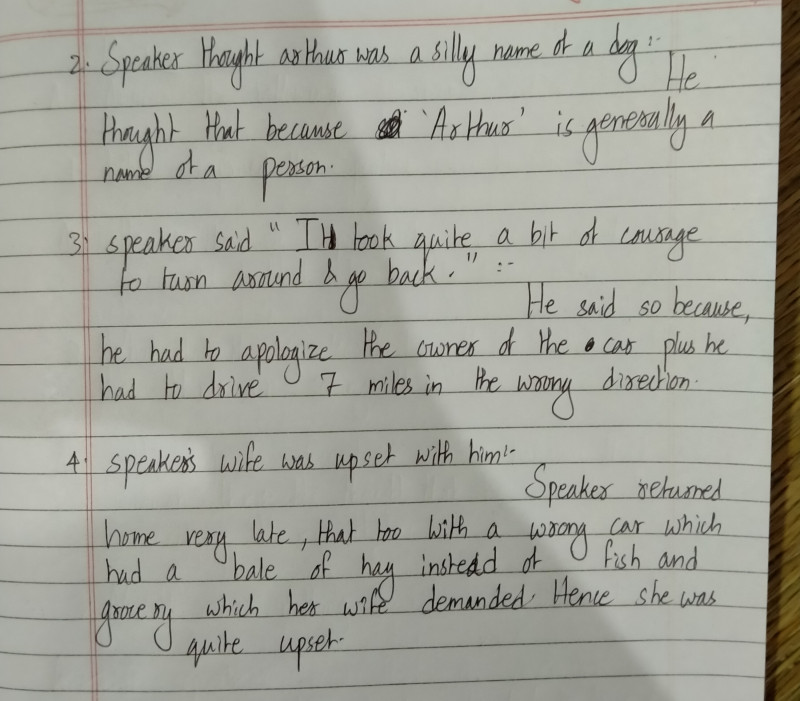 2. Speaker thought arthur was a silly name of a dog :-
He
thought that because 'Arthur' is generally a
name of a person.
3. speaker said "It took quite a bit of courage
to turn around & go back." :-
He said so because,
he had to apologize the owner of the car plus he
had to drive 7 miles in the wrong direction.
4. speaker's wife was upset with him:-
Speaker returned
home very late, that too with a wrong car which
had a bale of hay instead of fish and
grocery which her wife demanded. Hence she was
quite upset.